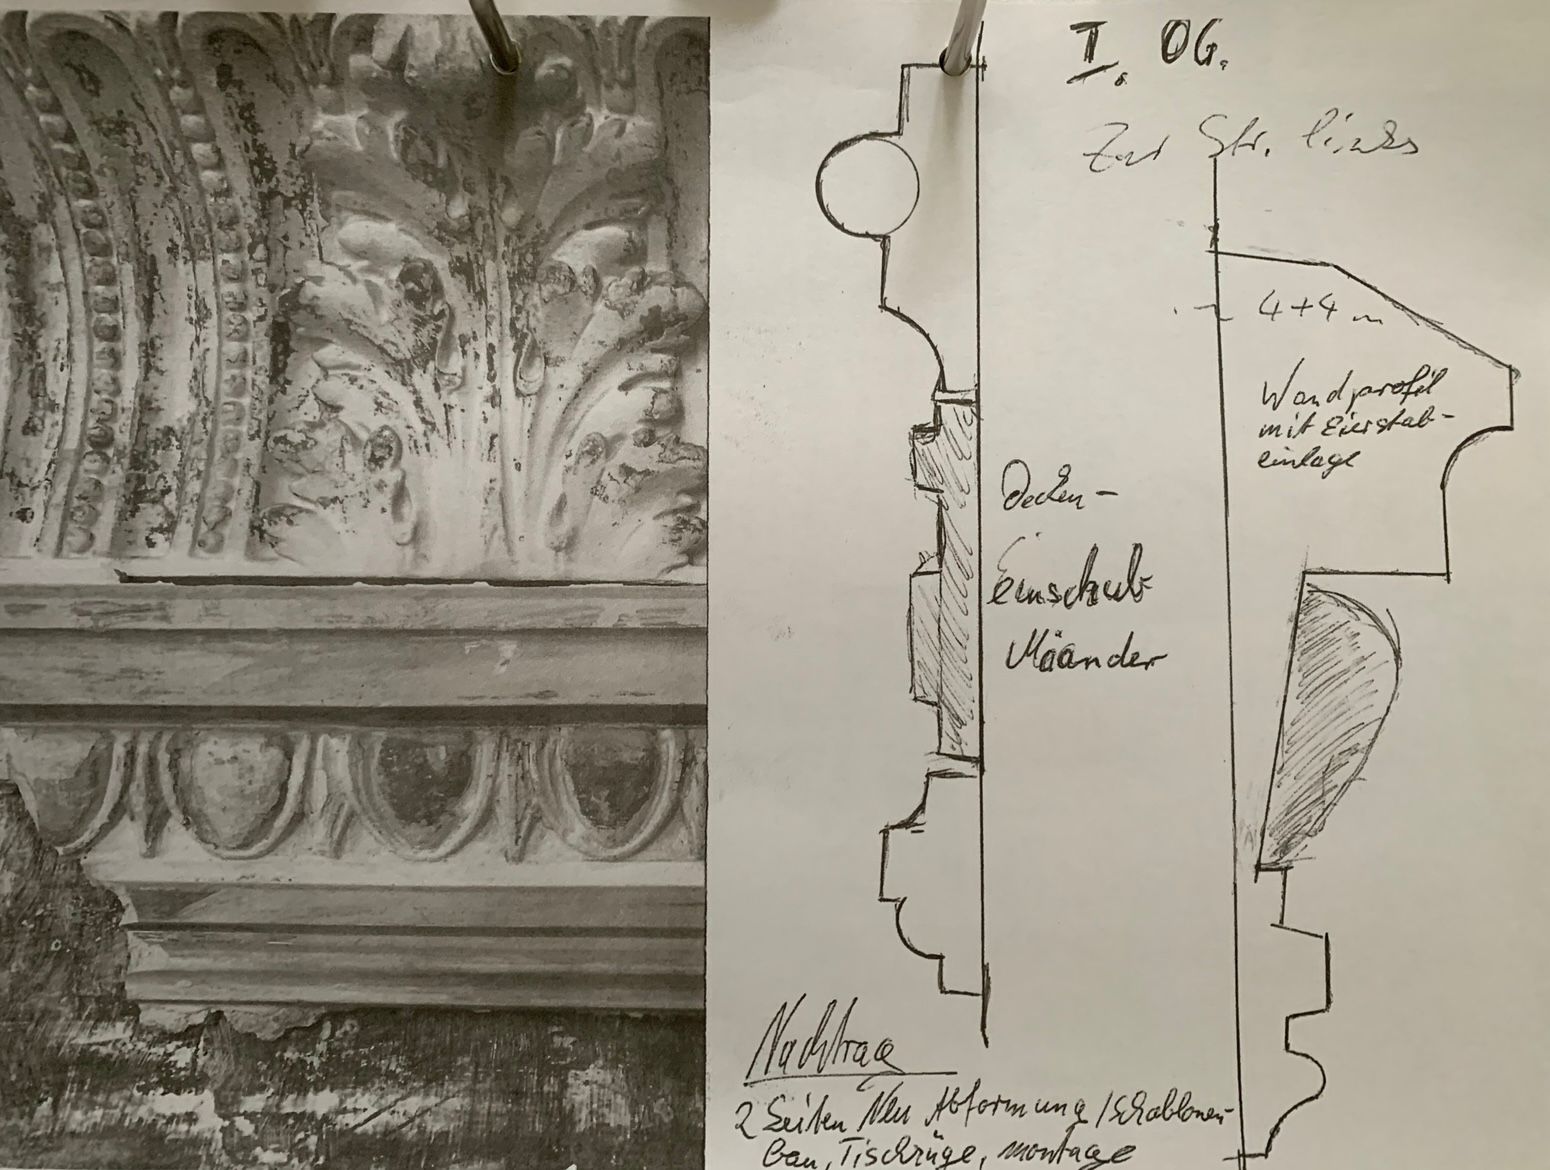 I. OG.
Zur Str. links
4+4 m
Wandprofil
mit Eierstab-
einlage
Decken-
Einschub
Mäander
Nachtrag
2 Seiten Neu Abformung / Schablonen-
bau, Tischzüge, montage